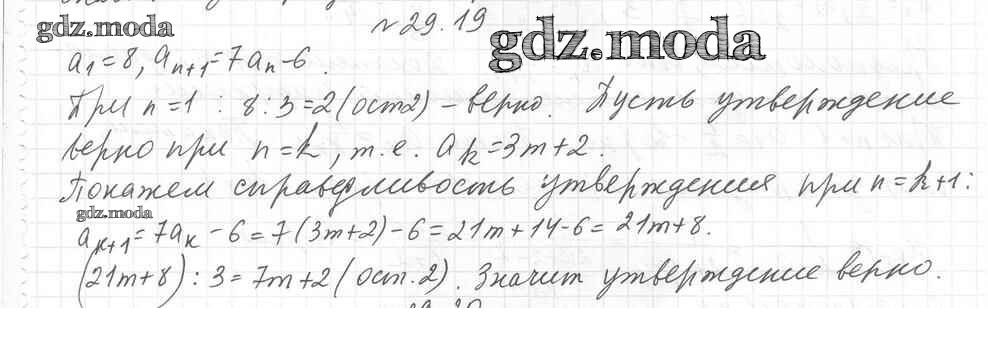 gdz.moda
№29.19
gdz.moda
a₁=8, aₙ₊₁=7aₙ-6.
При n=1 : 8:3=2(ост2) – верно. Пусть утверждение
верно при n=k, т.е. aₖ=3m+2.
Покажем справедливость утверждения при n=k+1:
gdz.moda
aₖ₊₁=7aₖ-6=7(3m+2)-6=21m+14-6=21m+8.
(21m+8):3=7m+2(ост.2). Значит утверждение верно.